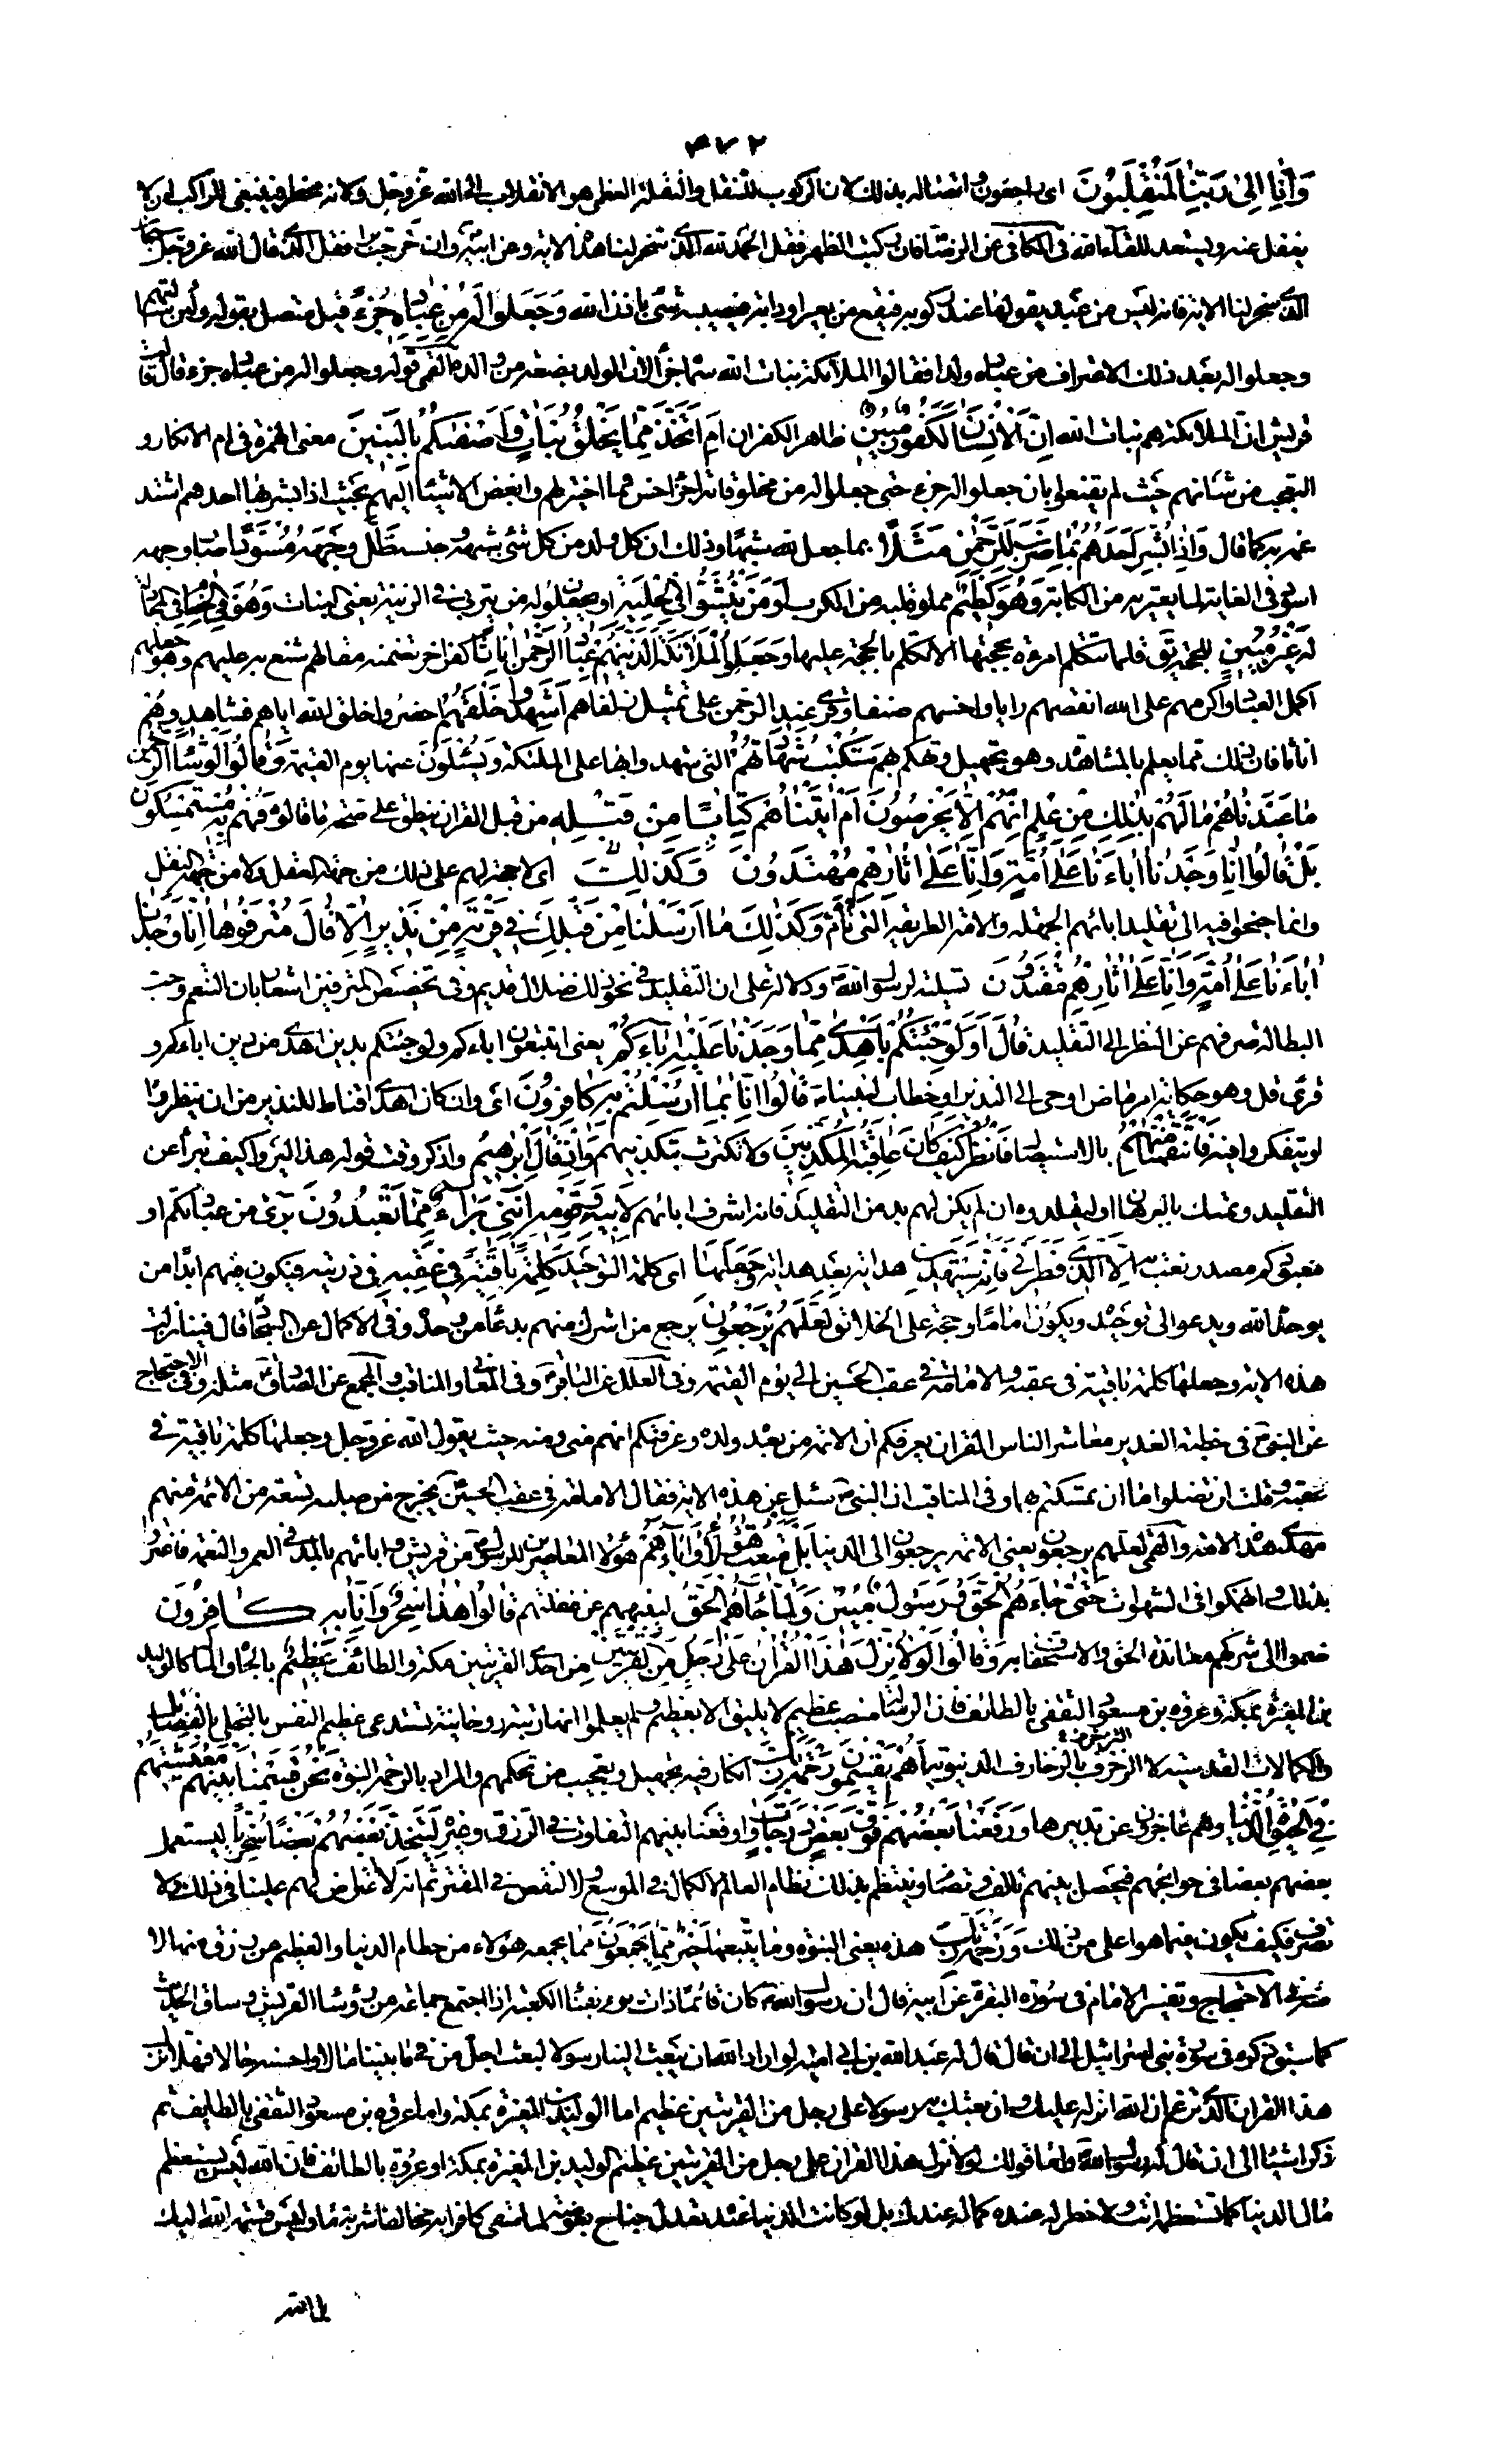 ٣٧٢
وَإِنَّا إِلَىٰ رَبِّنَا لَمُنْقَلِبُونَ اى راجعون واتصاله بذلك لان الركوب للتنقل والنقلة العظمى هو الانقلاب الى الله عز وجل ولانه مخطر فينبغى للراكب ان لا
يغفل عنه ويستعد للقاء الله فى الكافى عن الرضا فان ركبت الظهر فقل الحمد لله الذى سخر لنا هذا الاية وعن ابيه وان خرجت برا فقل الذى قال الله عز وجل سبحان
الذى سخر لنا الاية فانه ليس من عبد يقولها عند ركوبه فيقع من بعير او دابة فيصيبه شئ باذن الله وَجَعَلُوا لَهُ مِنْ عِبَادِهِ جُزْءً قيل متصل بقوله ولئن سئلتهم اى
وجعلوا له بعد ذلك الاعتراف من عباده ولدا فقالوا الملائكة بنات الله سماه جزأ لان الولد بضعة من والده القمى قوله وجعلوا له من عباده جزء قال قالت
قريش ان الملائكة هم بنات الله إِنَّ الْإِنْسَانَ لَكَفُورٌ مُبِينٌ ظاهر الكفران أَمِ اتَّخَذَ مِمَّا يَخْلُقُ بَنَاتٍ وَأَصْفَيٰكُمْ بِالْبَنِينَ معنى الهمزة فى ام الانكار و
التعجب من شانهم حيث لم يقنعوا بان جعلوا له جزء حتى جعلوا له من مخلوقاته اجزاء اخس مما اختير لهم وابغض الاشياء اليهم بحيث اذا بشر بها احدهم اشتد
غمه به كما قال وَإِذَا بُشِّرَ أَحَدُهُمْ بِمَا ضَرَبَ لِلرَّحْمٰنِ مَثَلًا بما جعل لله شبها وذلك ان كل ولد من كل شئ شبهه وجنسه ظَلَّ وَجْهُهُ مُسْوَدًّا صار وجهه
اسود فى الغاية لما يعتريه من الكابة وَهُوَ كَظِيمٌ مملو قلبه من الكرب أَوَمَنْ يُنَشَّؤُا فِي الْحِلْيَةِ او يجعلون له من يتربى فى الزينة يعنى البنات وَهُوَ فِي الْخِصَامِ فى المجادلة
غَيْرُ مُبِينٍ للحجة يق قلما تتكلم امرءة بحجتها الا تتكلم بالحجة عليها وَجَعَلُوا الْمَلَائِكَةَ الَّذِينَ هُمْ عِبَادُ الرَّحْمٰنِ إِنَاثًا كفر اخر تضمنه مقالهم شنع به عليهم وهو جعلهم
اكمل العباد واكرمهم على الله انقصهم رايا واخسهم صنفا وقرئ عند الرحمن على تمثيل زلفاهم أَشَهِدُوا خَلْقَهُمْ احضروا خلق الله اياهم فشاهدوهم
اناثا فان ذلك مما يعلم بالمشاهدة وهو تجهيل وتهكم بهم سَتُكْتَبُ شَهَادَتُهُمْ التى شهدوا بها على الملئكة وَيُسْئَلُونَ عنها يوم القيمة وَقَالُوا لَوْ شَاءَ الرَّحْمٰنُ
مَا عَبَدْنَاهُمْ مَا لَهُمْ بِذٰلِكَ مِنْ عِلْمٍ إِنْ هُمْ إِلَّا يَخْرُصُونَ أَمْ آتَيْنَاهُمْ كِتَابًا مِنْ قَبْلِهِ من قبل القران ينطق على صحة ما قالوه فَهُمْ بِهِ مُسْتَمْسِكُونَ
بَلْ قَالُوا إِنَّا وَجَدْنَا آبَاءَنَا عَلَىٰ أُمَّةٍ وَإِنَّا عَلَىٰ آثَارِهِمْ مُهْتَدُونَ وَكَذٰلِكَ اى لا حجة لهم على ذلك من جهة العقل ولا من جهة النقل
وانما جنحوا فيه الى تقليد ابائهم الجهلة والامة الطريقة التى تؤم وَكَذٰلِكَ مَا أَرْسَلْنَا مِنْ قَبْلِكَ فِي قَرْيَةٍ مِنْ نَذِيرٍ إِلَّا قَالَ مُتْرَفُوهَا إِنَّا وَجَدْنَا
آبَاءَنَا عَلَىٰ أُمَّةٍ وَإِنَّا عَلَىٰ آثَارِهِمْ مُقْتَدُونَ تسلية لرسول الله ودلالة على ان التقليد فى نحو ذلك ضلال قديم وفى تخصيص المترفين اشعار بان التنعم وحب
البطالة صرفهم عن النظر الى التقليد قَالَ أَوَلَوْ جِئْتُكُمْ بِأَهْدَىٰ مِمَّا وَجَدْتُمْ عَلَيْهِ آبَاءَكُمْ يعنى اتتبعون اباءكم ولو جئتكم بدين اهدى من دين ابائكم و
قرئ قل وهو حكاية امر ماض اوحى الى النذير او خطاب لنبينا قَالُوا إِنَّا بِمَا أُرْسِلْتُمْ بِهِ كَافِرُونَ اى وان كان اهدى اقناط للنذير من ان ينظروا
او يتفكروا فيه فَانْتَقَمْنَا مِنْهُمْ بالاستيصال فَانْظُرْ كَيْفَ كَانَ عَاقِبَةُ الْمُكَذِّبِينَ ولا تكترث بتكذيبهم وَإِذْ قَالَ إِبْرَاهِيمُ واذكر وقت قوله هذا ليروا كيف تبرأ عن
التقليد وتمسك بالبرهان او ليقلدوه ان لم يكن لهم بد من التقليد فانه اشرف ابائهم لِأَبِيهِ وَقَوْمِهِ إِنَّنِي بَرَاءٌ مِمَّا تَعْبُدُونَ برئ من عبادتكم او
معبودكم مصدر نعت به إِلَّا الَّذِي فَطَرَنِي فَإِنَّهُ سَيَهْدِينِ هداية بعد هداية وَجَعَلَهَا اى كلمة التوحيد كَلِمَةً بَاقِيَةً فِي عَقِبِهِ فى ذريته فيكون فيهم ابدا من
يوحد الله ويدعو الى توحيده ويكون اماما وحجة على الخلائق لَعَلَّهُمْ يَرْجِعُونَ يرجع من اشرك منهم بدعاء من وحده وفى الاكمال عن السجاد قال فينا نزلت
هذه الاية وجعلها كلمة باقية فى عقبه والامامة فى عقب الحسين الى يوم القيمة وفى العلل عن الباقر وفى المعانى والمناقب والمجمع عن الصادق مثله وفى الاحتجاج
عن النبى فى خطبة الغدير معاشر الناس القران يعرفكم ان الائمة من بعده ولده وعرفتكم انهم منى ومنه حيث يقول الله عز وجل وجعلها كلمة باقية فى
عقبه وقلت لن تضلوا ما ان تمسكتم بهما وفى المناقب ان النبى سئل عن هذه الاية فقال الامامة فى عقب الحسين يخرج من صلبه تسعة من الائمة منهم
مهدى هذه الامة والقمى لعلهم يرجعون يعنى الائمة يرجعون الى الدنيا بَلْ مَتَّعْتُ هٰؤُلَاءِ وَآبَاءَهُمْ هؤلاء المعاصرين للرسول من قريش وابائهم بالمد فى العمر والنعمة فاغتروا
بذلك وانهمكوا فى الشهوات حَتَّىٰ جَاءَهُمُ الْحَقُّ وَرَسُولٌ مُبِينٌ وَلَمَّا جَاءَهُمُ الْحَقُّ لينبههم عن غفلتهم قَالُوا هٰذَا سِحْرٌ وَإِنَّا بِهِ كَافِرُونَ
ضموا الى شركهم معاندة الحق والاستخفاف به وَقَالُوا لَوْلَا نُزِّلَ هٰذَا الْقُرْآنُ عَلَىٰ رَجُلٍ مِنَ الْقَرْيَتَيْنِ من احدى القريتين مكة والطائف عَظِيمٍ بالجاه والمال كالوليد
بن المغيرة بمكة وعروة بن مسعود الثقفى بالطائف فان الرسالة منصب عظيم لا يليق الا بعظيم ولم يعلموا انها رتبة روحانية تستدعى عظيم النفس بالتحلى بالفضايل
والكمالات القدسية لا التزخرف بالزخارف الدنيوية أَهُمْ يَقْسِمُونَ رَحْمَتَ رَبِّكَ انكار فيه تجهيل وتعجيب من تحكمهم والمراد بالرحمة النبوة نَحْنُ قَسَمْنَا بَيْنَهُمْ مَعِيشَتَهُمْ
فِي الْحَيٰوةِ الدُّنْيَا وهم عاجزون عن تدبيرها وَرَفَعْنَا بَعْضَهُمْ فَوْقَ بَعْضٍ دَرَجَاتٍ واوقعنا بينهم التفاوت فى الرزق وغيره لِيَتَّخِذَ بَعْضُهُمْ بَعْضًا سُخْرِيًّا ليستعمل
بعضهم بعضا فى حوائجهم فيحصل بينهم تالف وتضام وينتظم بذلك نظام العالم لا لكمال فى الموسع ولا لنقص فى المقتر ثم انه لا اعتراض لهم علينا فى ذلك ولا
تصرف فكيف يكون فيما هو اعلى من ذلك وَرَحْمَتُ رَبِّكَ هذه يعنى النبوة وما يتبعها خَيْرٌ مِمَّا يَجْمَعُونَ مما يجمعه هؤلاء من حطام الدنيا والعظيم من رزق منها لا
منه فى الاحتجاج وتفسير الامام فى سورة البقرة عن ابيه قال ان رسول الله كان قاعدا ذات يوم بفناء الكعبة اذ اجتمع جماعة من رؤساء القريش وساق الحديث
كما سبق ذكره فى سورة بنى اسرائيل الى ان قال قال له عبد الله بن ابى امية لو اراد الله ان يبعث الينا رسولا لبعث اجل من فيما بيننا مالا واحسنه حالا فهلا نزل
هذا القران الذى تزعم ان الله انزله عليك وانبعثك به رسولا على رجل من القريتين عظيم اما الوليد بن المغيرة بمكة واما عروة بن مسعود الثقفى بالطايف ثم
ذكر اشياء الى ان قال له رسول الله واما قولك لولا نزل هذا القران على رجل من القريتين عظيم كوليد بن المغيرة بمكة او عروة بالطائف فان الله ليس يستعظم
مال الدنيا كما تستعظمه انت ولا خطر له عنده كما له عندك بل لو كانت الدنيا عنده تعدل جناح بعوضة لما سقى كافرا به مخالفا شربة ماء وليس قسمة الله اليك
بل الله